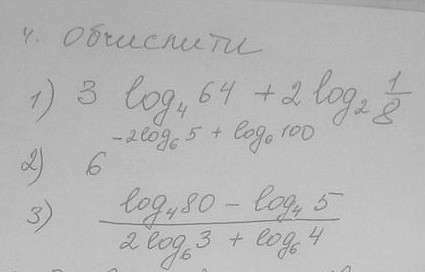 4. Обчислити
1) 3 log₄ 64 + 2 log₂ 1/8
2) 6^(-2log₆ 5 + log₆ 100)
3) (log₄ 80 - log₄ 5) / (2 log₆ 3 + log₆ 4)